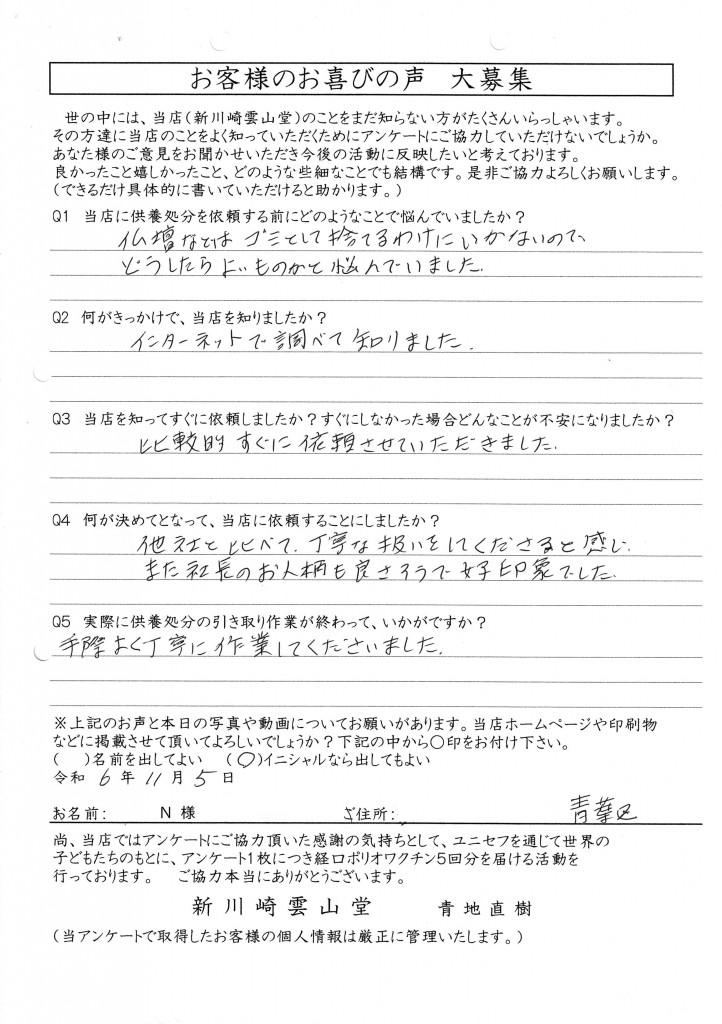 お客様のお喜びの声　大募集
世の中には、当店(新川崎雲山堂)のことをまだ知らない方がたくさんいらっしゃいます。
その方達に当店のことをよく知っていただくためにアンケートにご協力していただけないでしょうか。
あなた様のご意見をお聞かせいただき今後の活動に反映したいと考えております。
良かったこと嬉しかったこと、どのような些細なことでも結構です。是非ご協力よろしくお願いします。
(できるだけ具体的に書いていただけると助かります。)
Q1 当店に供養処分を依頼する前にどのようなことで悩んでいましたか?
仏壇などはゴミとして捨てるわけにいかないので、
どうしたらよいものかと悩んでいました.
Q2 何がきっかけで、当店を知りましたか?
インターネットで調べて知りました.
Q3 当店を知ってすぐに依頼しましたか?すぐにしなかった場合どんなことが不安になりましたか?
比較的すぐに依頼させていただきました.
Q4 何が決めてとなって、当店に依頼することにしましたか?
他社と比べて、丁寧な扱いをしてくださると感じ.
また社長のお人柄も良さそうで好印象でした.
Q5 実際に供養処分の引き取り作業が終わって、いかがですか?
手際よく丁寧に作業してくださいました.
※上記のお声と本日の写真や動画についてお願いがあります。当店ホームページや印刷物
などに掲載させて頂いてよろしいでしょうか?下記の中から○印をお付け下さい。
(　)名前を出してよい　(○)イニシャルなら出してもよい
令和 6 年 11 月 5 日
お名前:　N 様　ご住所:　青葉区
尚、当店ではアンケートにご協力頂いた感謝の気持ちとして、ユニセフを通じて世界の
子どもたちのもとに、アンケート1枚につき経口ポリオワクチン5回分を届ける活動を
行っております。　ご協力本当にありがとうございます。
新川崎雲山堂　青地直樹
(当アンケートで取得したお客様の個人情報は厳正に管理いたします。)